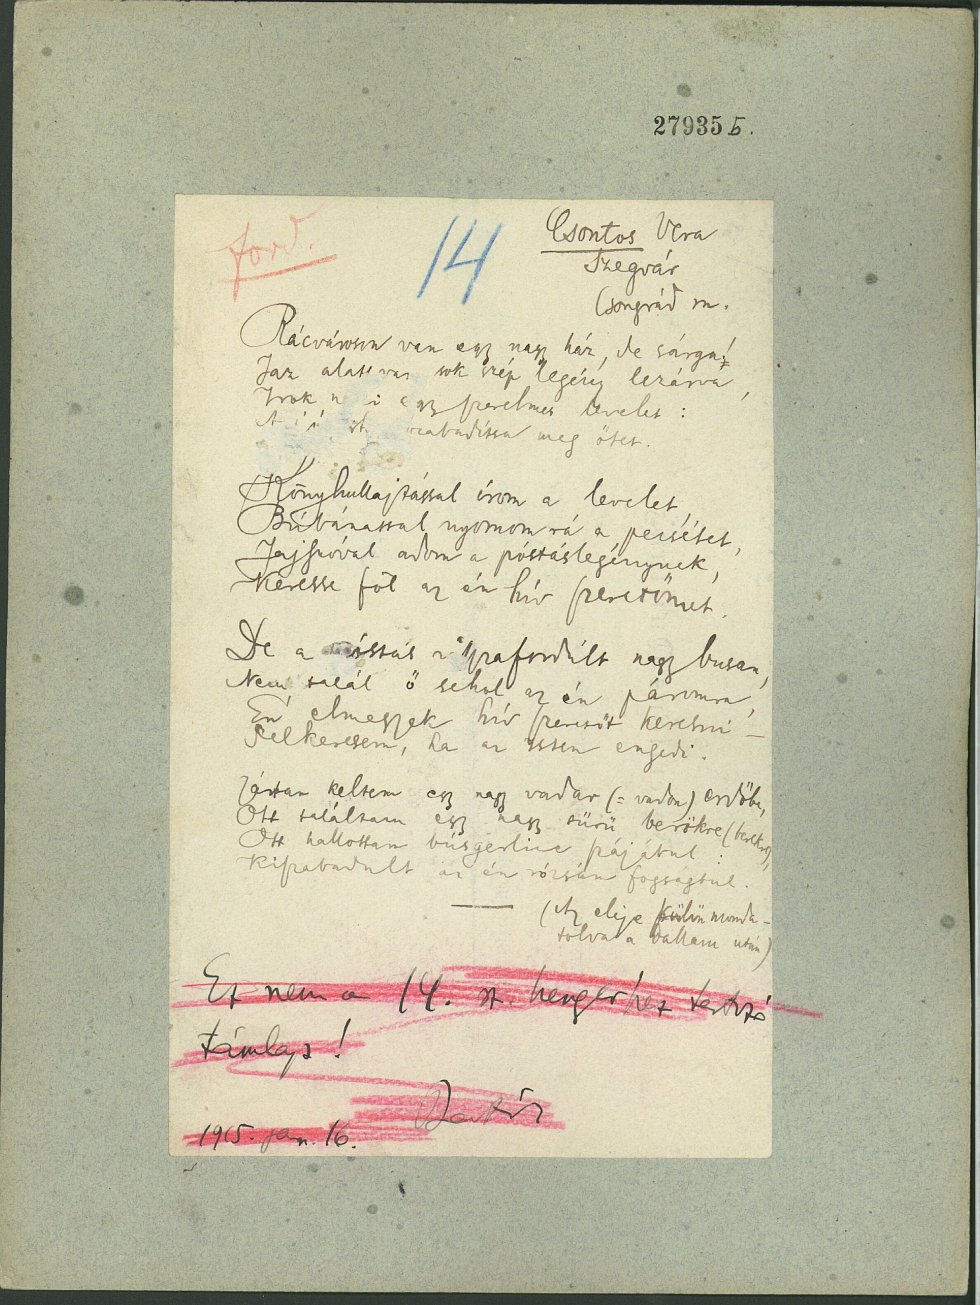 27935 b.
ford.
14
Csontos Vera
Szegvár
Csongrád m.
Rácvároson van egy nagy ház, de sárga!
Jaz alatt van sok szép legény lezárva,
Irok neki egy szerelmes levelet:
szabadítsa meg őtet.
Könyhullajtással írom a levelet,
Búbánattal nyomom rá a pecsétet,
Jajszóval adom a póstáslegénynek,
Keresse föl az én hív szeretőmet.
De a póstás visszafordúlt nagy busan,
Nem talál ő sehol az én páromra,
Én elmegyek hív szeretőt keresni –
Felkeresem, ha az isten engedi.
egy nagy vadar (= vadon) erdőbe,
Ott találtam egy nagy sürü berökre (berekre),
Ott hallottam búsgerlice szájábul:
Kiszabadult az én rózsám fogságbul.
(Az eleje külön monda-
tolva a dallam után)
Ez nem a 14. sz. hengerhez tartozó
támlap!
Bartók
1915. jan. 16.